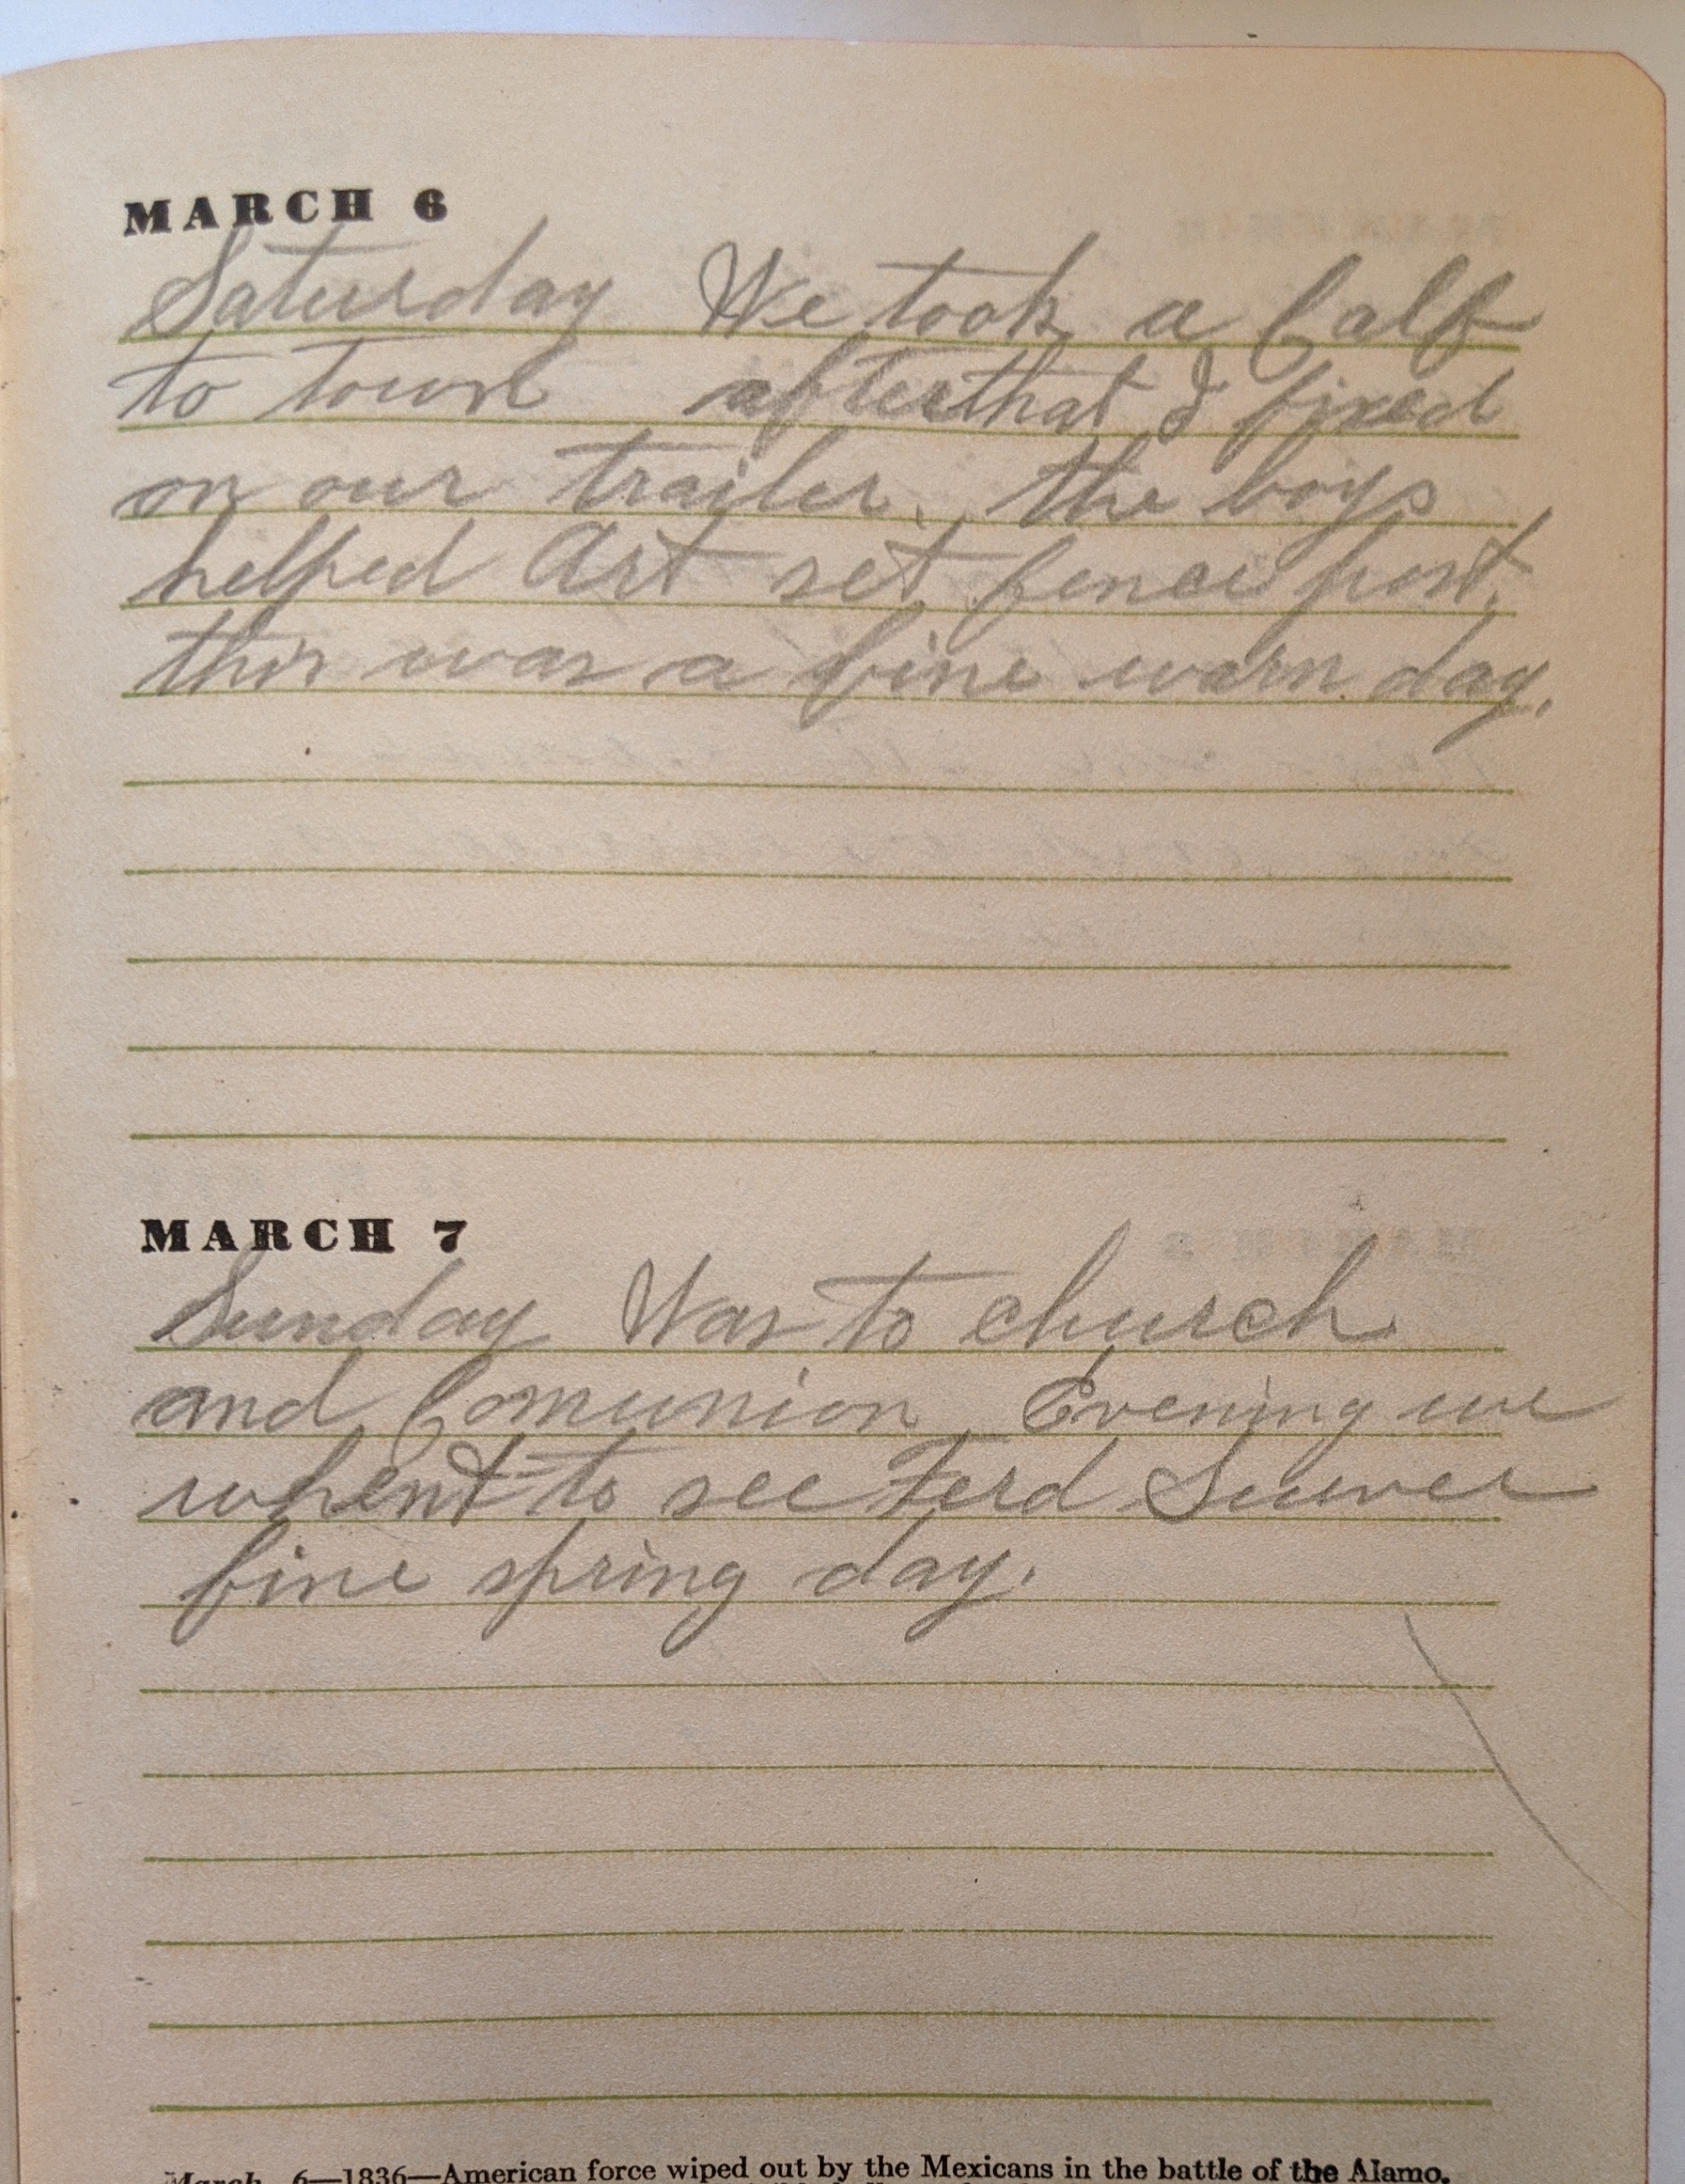 MARCH 6
Saturday We took a Calf
to town afterthat I fixed
on our trailer. the boys
helped Art set fence post.
this was a fine warn day.
MARCH 7
Sunday Was to church
and Comunion Evening we
whent to see Ferd
fine spring day.
March 6—1836—American force wiped out by the Mexicans in the battle of the Alamo.